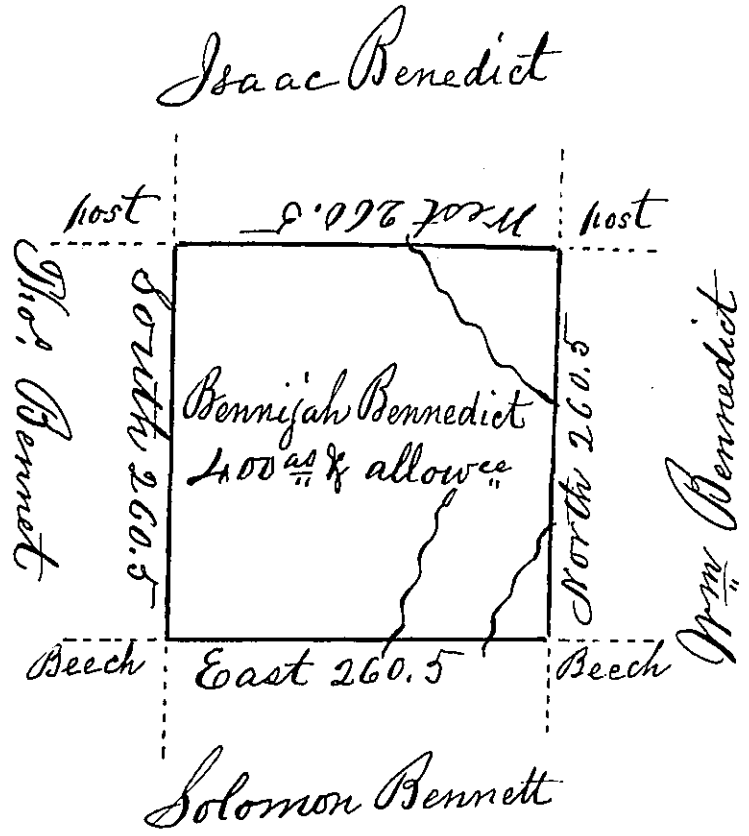 Isaac Benedict
post
West 260.5
post
Thos. Bennet
South 260.5
Bennijah Bennedict
400 as & allowce
North 260.5
Wm Bennedict
Beech
East 260.5
Beech
Solomon Bennett